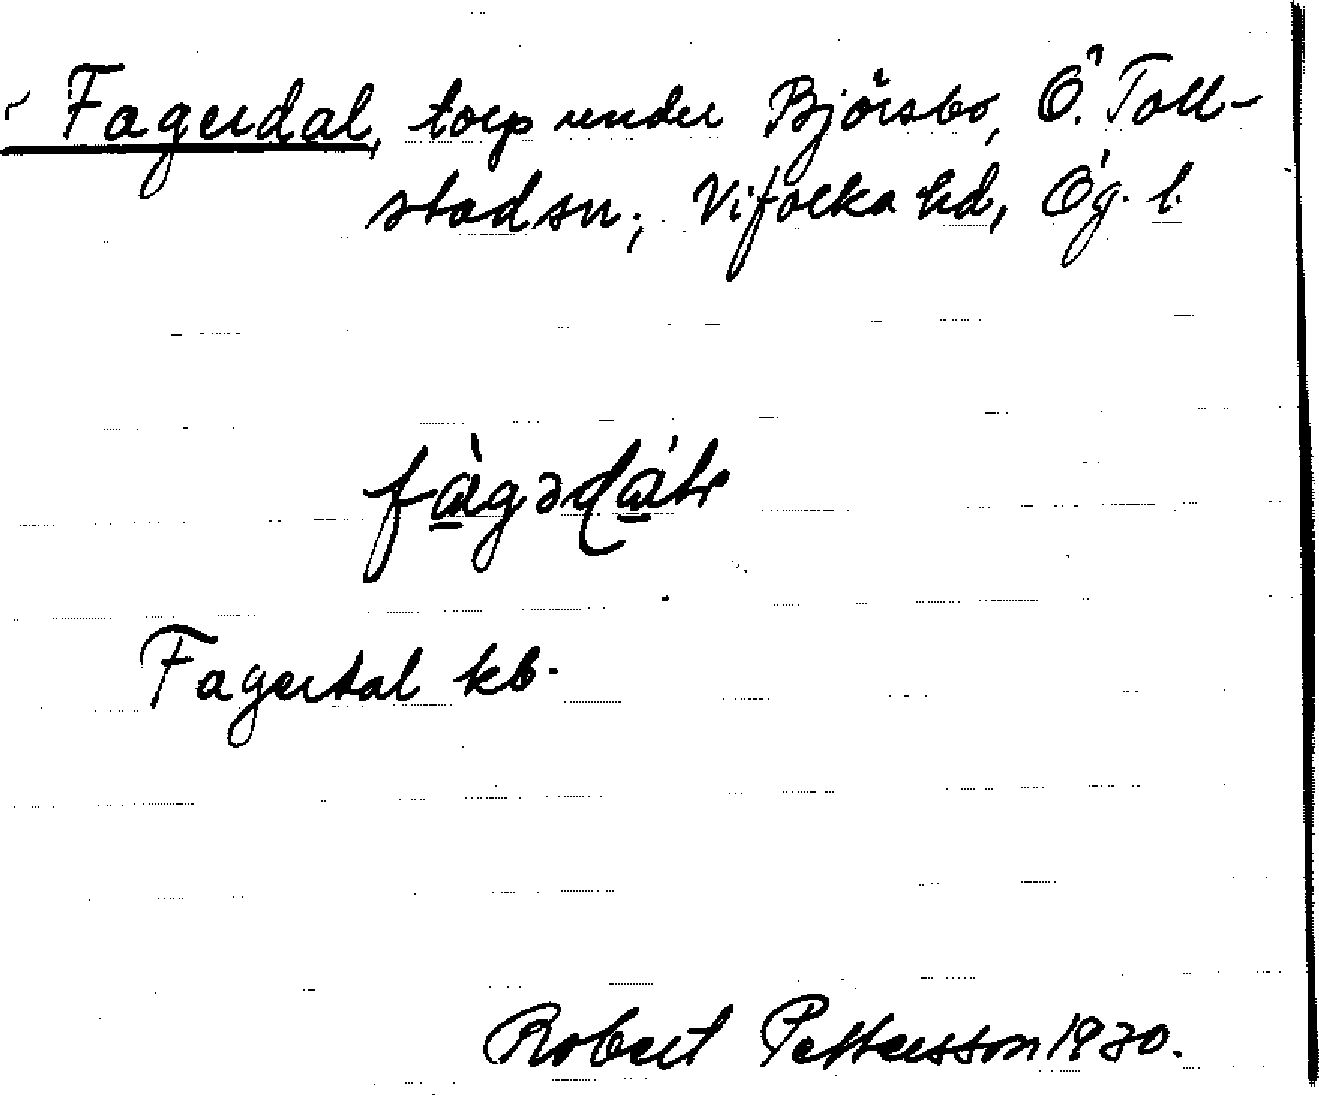 Fagerdal, torp under Björsbo, Ö. Toll-
stad sn, Vifolka hd, Ög. l.
fàgəɖálr
Fagerdal kb.
Robert Pettersson 1930.